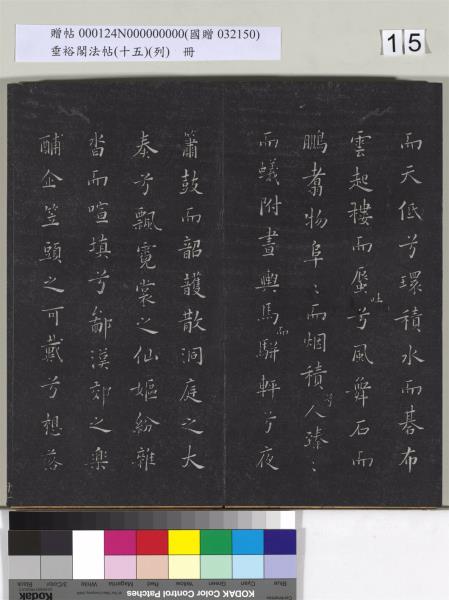 贈帖 000124N000000000(國贈 032150)
垂裕閣法帖(十五)(列) 冊
15
而天低兮環積水而碁布
雲起樓而蜃吐兮風舞石而
鵬翥物阜〻而烟積兮人臻〻
而蟻附晝輿馬而駢軒兮夜
簫鼓而韶頀散洞庭之大
奏兮飄霓裳之仙嫗紛雜
沓而喧填兮鄙漢郊之樂
酺企笠頭之可戴兮想落
KODAK Color Control Patches
Blue
Cyan
Green
Yellow
Red
Magenta
White
3/Color
Black